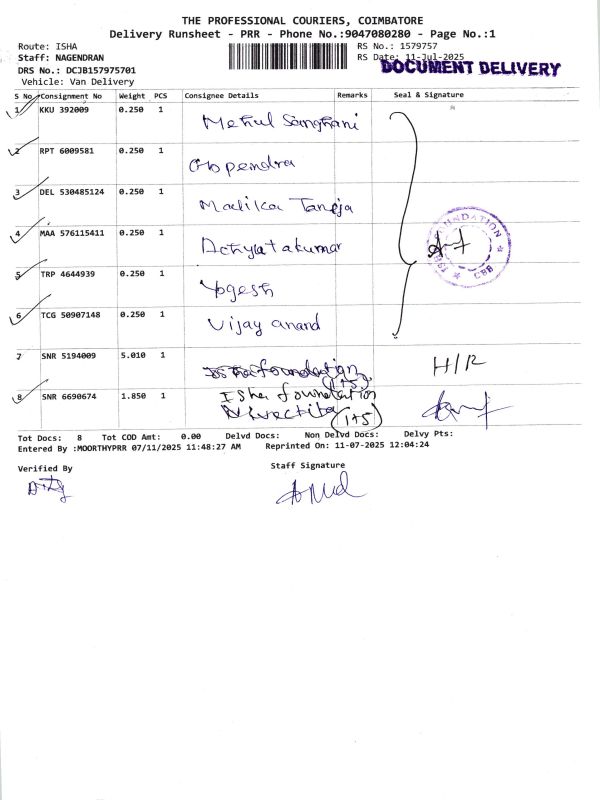 THE PROFESSIONAL COURIERS, COIMBATORE
Delivery Runsheet - PRR - Phone No.:9047080280 - Page No.:1
Route: ISHA
RS No.: 1579757
Staff: NAGENDRAN
RS Date: 11-Jul-2025
DRS No.: DCJB157975701
DOCUMENT DELIVERY
Vehicle: Van Delivery
S No. Consignment No Weight PCS Consignee Details Remarks Seal & Signature
1 KKU 392009 0.250 1 Mehul Sanghani
2 RPT 6009581 0.250 1 Gopendra
3 DEL 530485124 0.250 1 Malika Taneja
4 MAA 576115411 0.250 1
5 TRP 4644939 0.250 1 Yogesh
6 TCG 50907148 0.250 1 Vijay anand
7 SNR 5194009 5.010 1 Isha foundation (1+5) H/R
8 SNR 6690674 1.850 1 Isha foundation
(1+5)
FOUNDATION
CBB
Tot Docs: 8 Tot COD Amt: 0.00 Delvd Docs: Non Delvd Docs: Delvy Pts:
Entered By :MOORTHYPRR 07/11/2025 11:48:27 AM Reprinted On: 11-07-2025 12:04:24
Verified By
Staff Signature